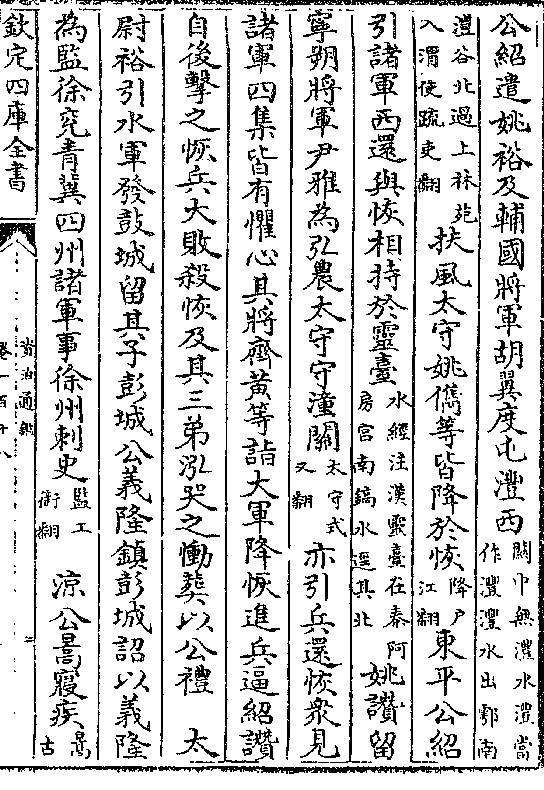 公紹遣姚裕及輔國將軍胡翼度屯澧西關中無澧水澧當作灃灃水出鄠南
澧谷北過上林苑入渭使疏吏翻扶風太守姚儁等皆降於恢降戶江翻東平公紹
引諸軍西還與恢相持於靈臺水經注漢靈臺在秦阿房宮南鎬水逕其北姚讃留
寧朔將軍尹雅為弘農太守守潼關太守式又翻亦引兵還恢衆見
諸軍四集皆有懼心其將齊黄等詣大軍降恢進兵逼紹讃
自後擊之恢兵大敗殺恢及其三弟泓哭之慟葬以公禮 太
尉裕引水軍發彭城留其子彭城公義隆鎮彭城詔以義隆
為監徐兖青冀四州諸軍事徐州刺史監工銜翻 涼公暠寢疾暠古
欽定四庫全書
資治通鑑
卷一百十八
二